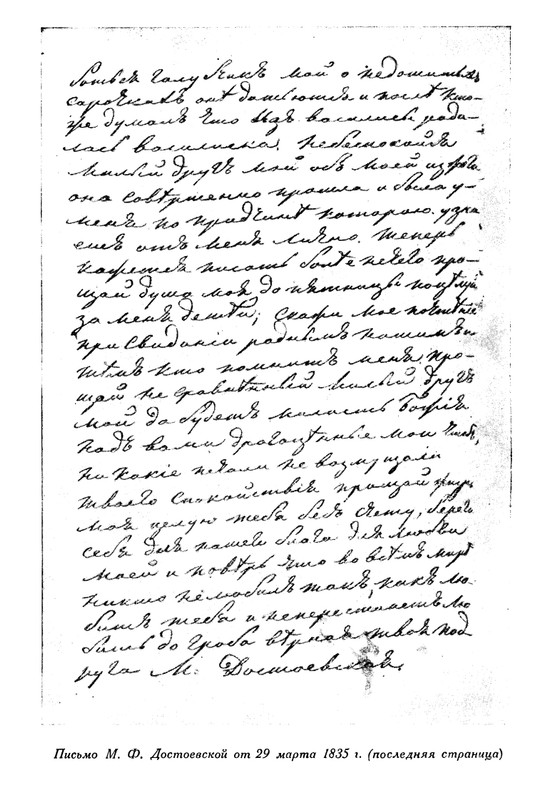 голубчикъ мой о недошитыхъ
сарочкахъ онѣ дошьются и послѣ кто-
же думалъ что вадъ василья роди-
лась василиса. небеспокойся
милый другъ мой объ моей изжоги
она совѣршенно прошла и была у-
меня по причинѣ которою узна
ешь отъ меня лично. теперь
кажется писать более нечего про-
щай душа моя до пятницы поцѣлуй
за меня детей; скажи мое почтѣніе
при свиданіи роднымъ нашимъ и
тѣмъ кто помнитъ меня про-
щай не сравнѣнный милый другъ
мой да будетъ милость божія
надъ вами драгоценные мои чтобъ,
ни какіе печали не возмущали
твоего спокойствія прощай
моя целую тебя безъ щету, береги
себя для нашего блага для любви
моей и повѣрь что во всѣмъ мирѣ
никто не любилъ такъ, какъ лю
битъ тебя и неперестаетъ лю
бить до гроба вѣрная твоя под
руга М. Достоевская.
Письмо М. Ф. Достоевской от 29 марта 1835 г. (последняя страница)